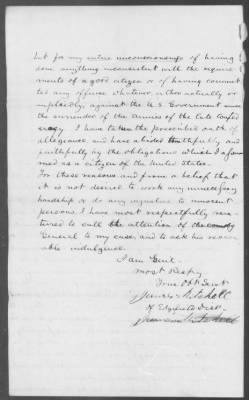 but for my entire unconsciousness of having
done anything inconsistent with the require-
ments of a good citizen or of having commit-
ted any offence whatever, either actually or
impliedly, against the U.S. Government since
the surrender of the Armies of the late Confed
eracy. I have taken the prescribed oath of
allegiance and have abided truthfully and
faithfully by the obligations which I assu
med as a citizen of the United States.
For these reasons and from a belief that
it is not desired to work any unnecessary
hardship or do any injustice to innocent
persons, I have most respectfully ven-
tured to call the attention of the
General to my case, and to ask his favor
able indulgence.
I am Genl.
most Respy
Your Obt Servt
James Mitchell
Of Edgefield Dist